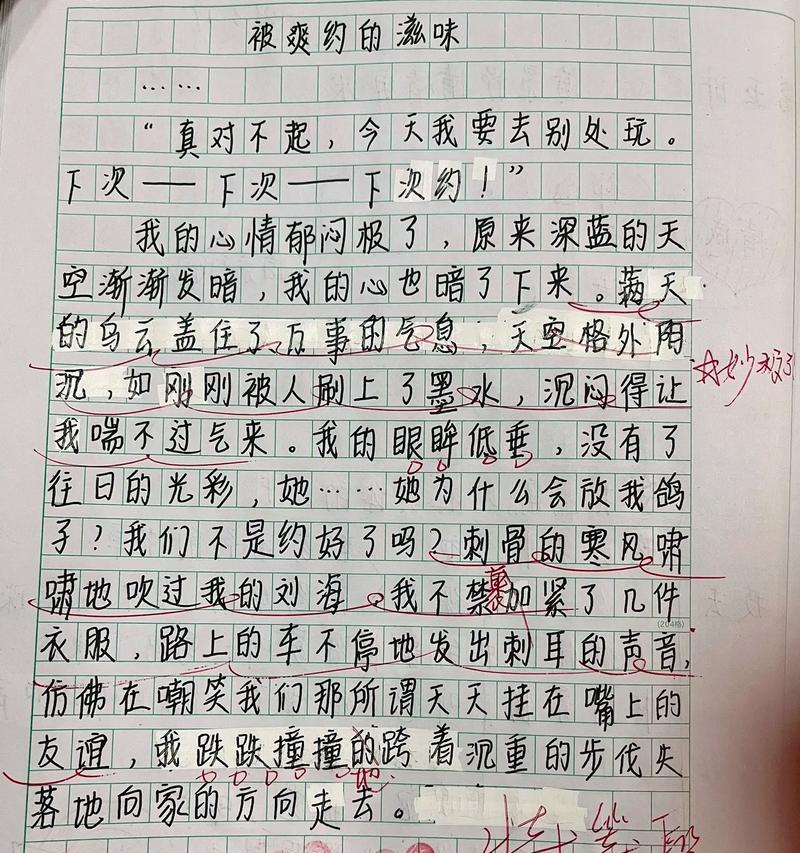 被爽约的滋味
……
“真对不起，今天我要去别处玩。
下次——下次——下次约！”
我的心情郁闷极了，原来深蓝的天
空渐渐发暗，我的心也暗了下来。满天
的乌云盖住了万事的气息，天空格外阴
沉，如刚刚被人刷上了墨水，沉闷得让
我喘不过气来。我的眼眸低垂，没有了
往日的光彩，她……她为什么会放我鸽
子？我们不是约好了吗？刺骨的寒风啸
啸地吹过我的刘海，我不禁裹紧了几件
(204格)
衣服，路上的车不停地发出刺耳的声音，
仿佛在嘲笑我们那所谓天天挂在嘴上的
友谊，我跌跌撞撞的跨着沉重的步伐失
地
落地向家的方向走去。